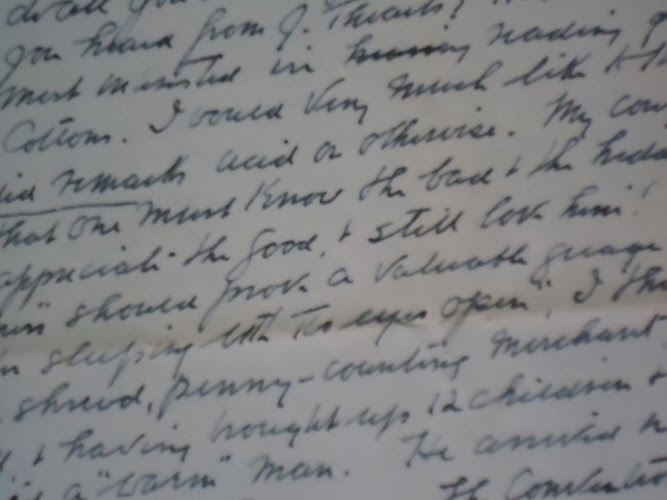 you heard from J. Thwaits?
most interested in reading
Cottom. I would very much like to
remarks acid or otherwise. My
that one must know the bad + the
appreciate the good, + still love him!
should prove a valuable guage
sleeping with the eyes open". I
shrewd, penny-counting merchant
+ having brought up 12 children +
a "warm" man. He arrived